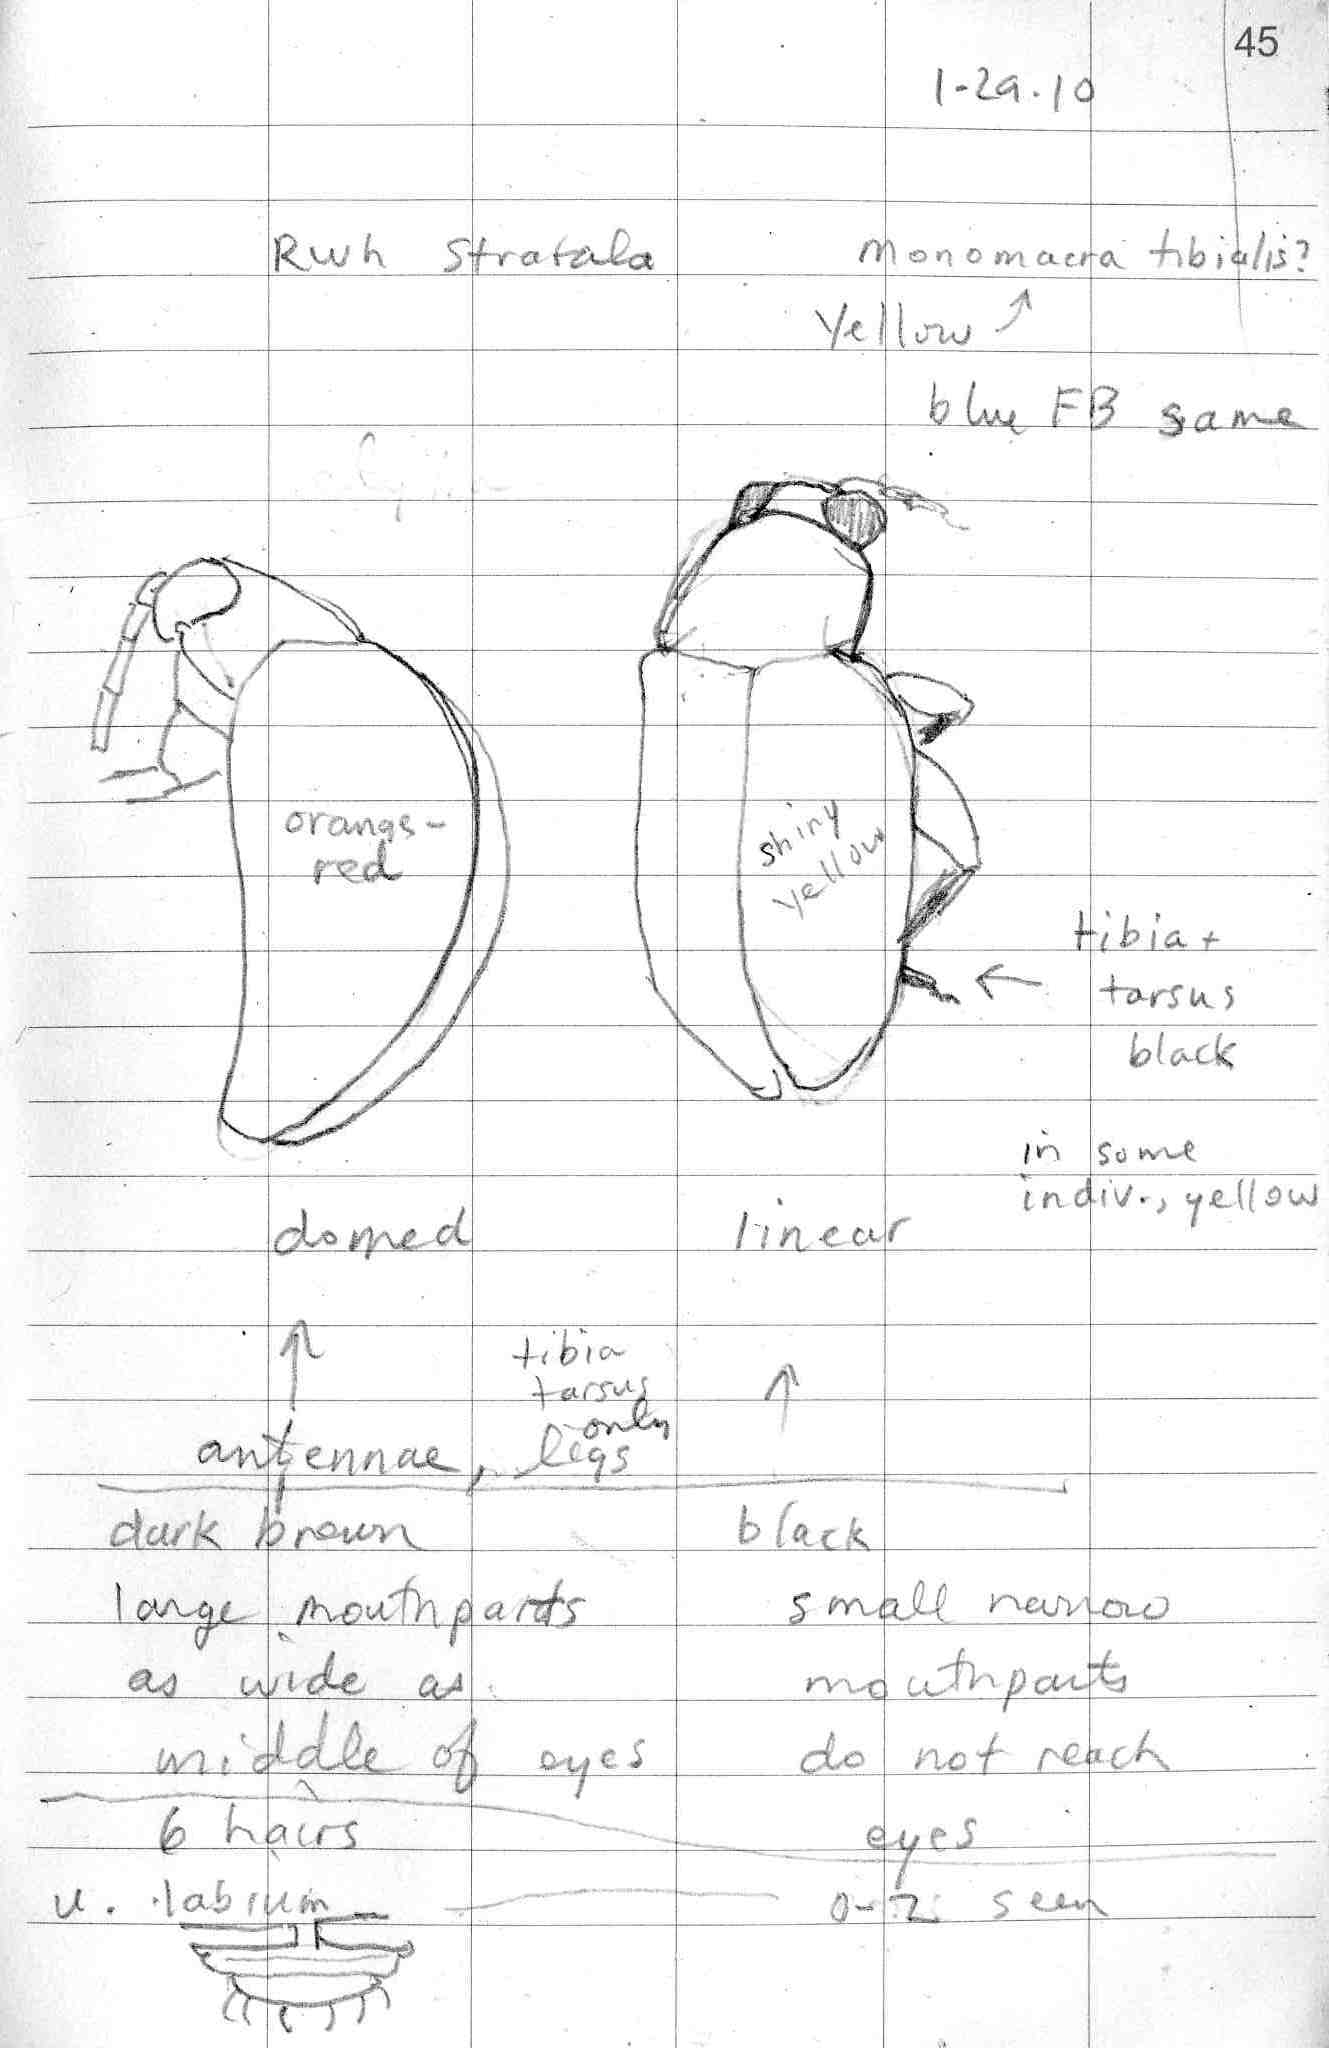 45
1-29-10
Rwh Stratala
Monomacra tibialis?
Yellow
blue FB same
orangs-
red
shiny
yellow
tibia +
tarsus
black
in some
indiv., yellow
domed
linear
tibia
tarsus
only
antennae, legs
dark brown
black
large mouthparts
as wide as
middle of eyes
small narrow
mouthparts
do not reach
eyes
6 hairs
u. labium
0-2 seen